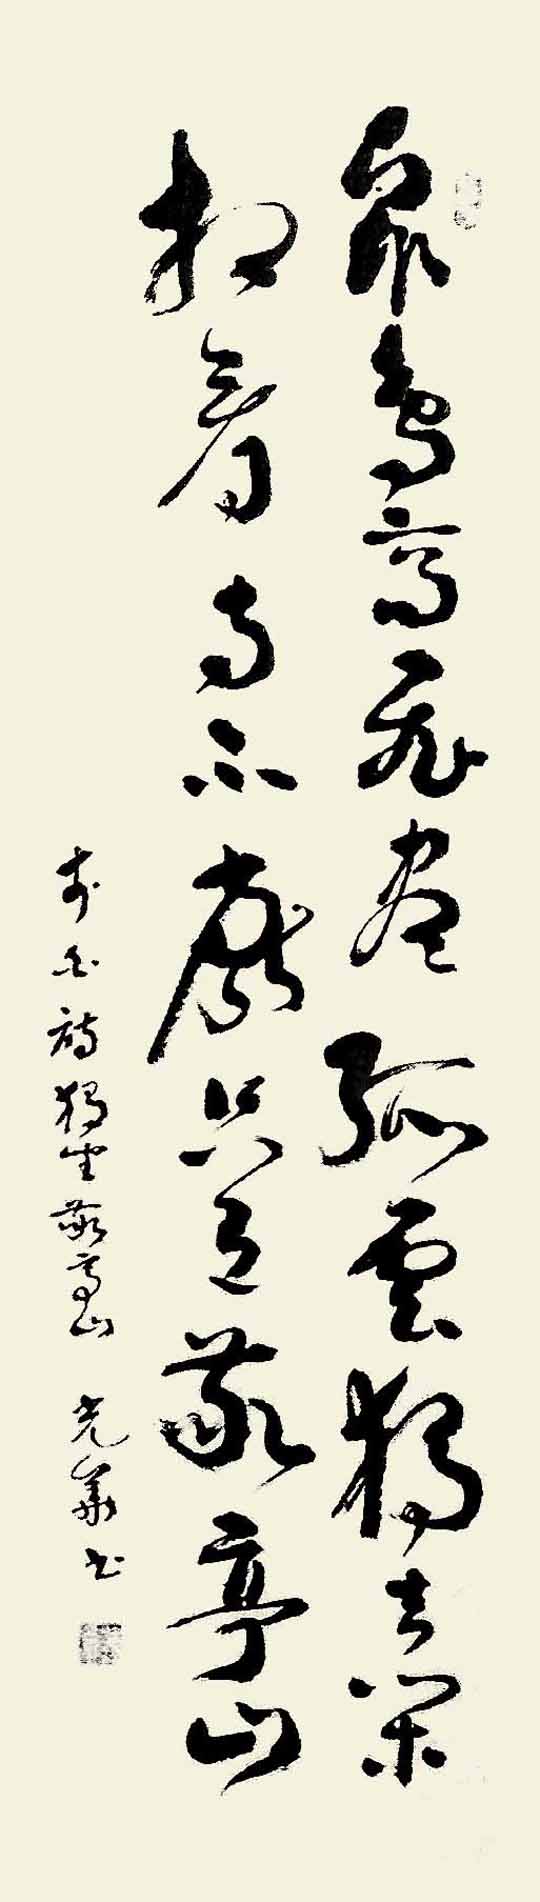 眾鳥高飛盡孤雲獨去閑
相看兩不厭只有敬亭山
李白詩獨坐敬亭山 光華书